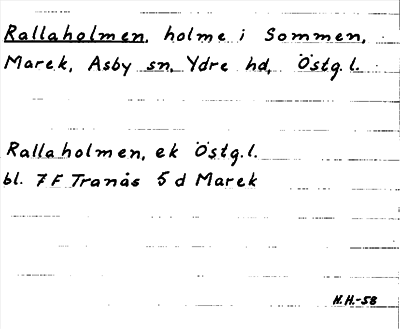 Rallaholmen, holme i Sommen,
Marek, Asby sn, Ydre hd, Östg. l.
Rallaholmen, ek Östg. l.
bl. 7 F Tranås 5 d Marek
H.H.-58